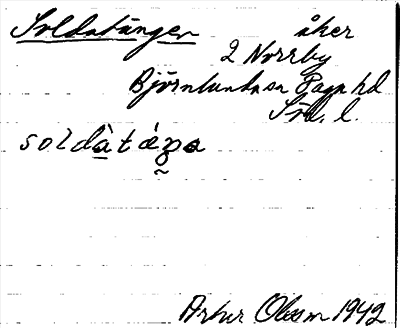 Soldatängen åker
2 Norrby
Björnlunda sn Daga hd
Söd. l.
soldàtáŋa
Artur Olsson 1942